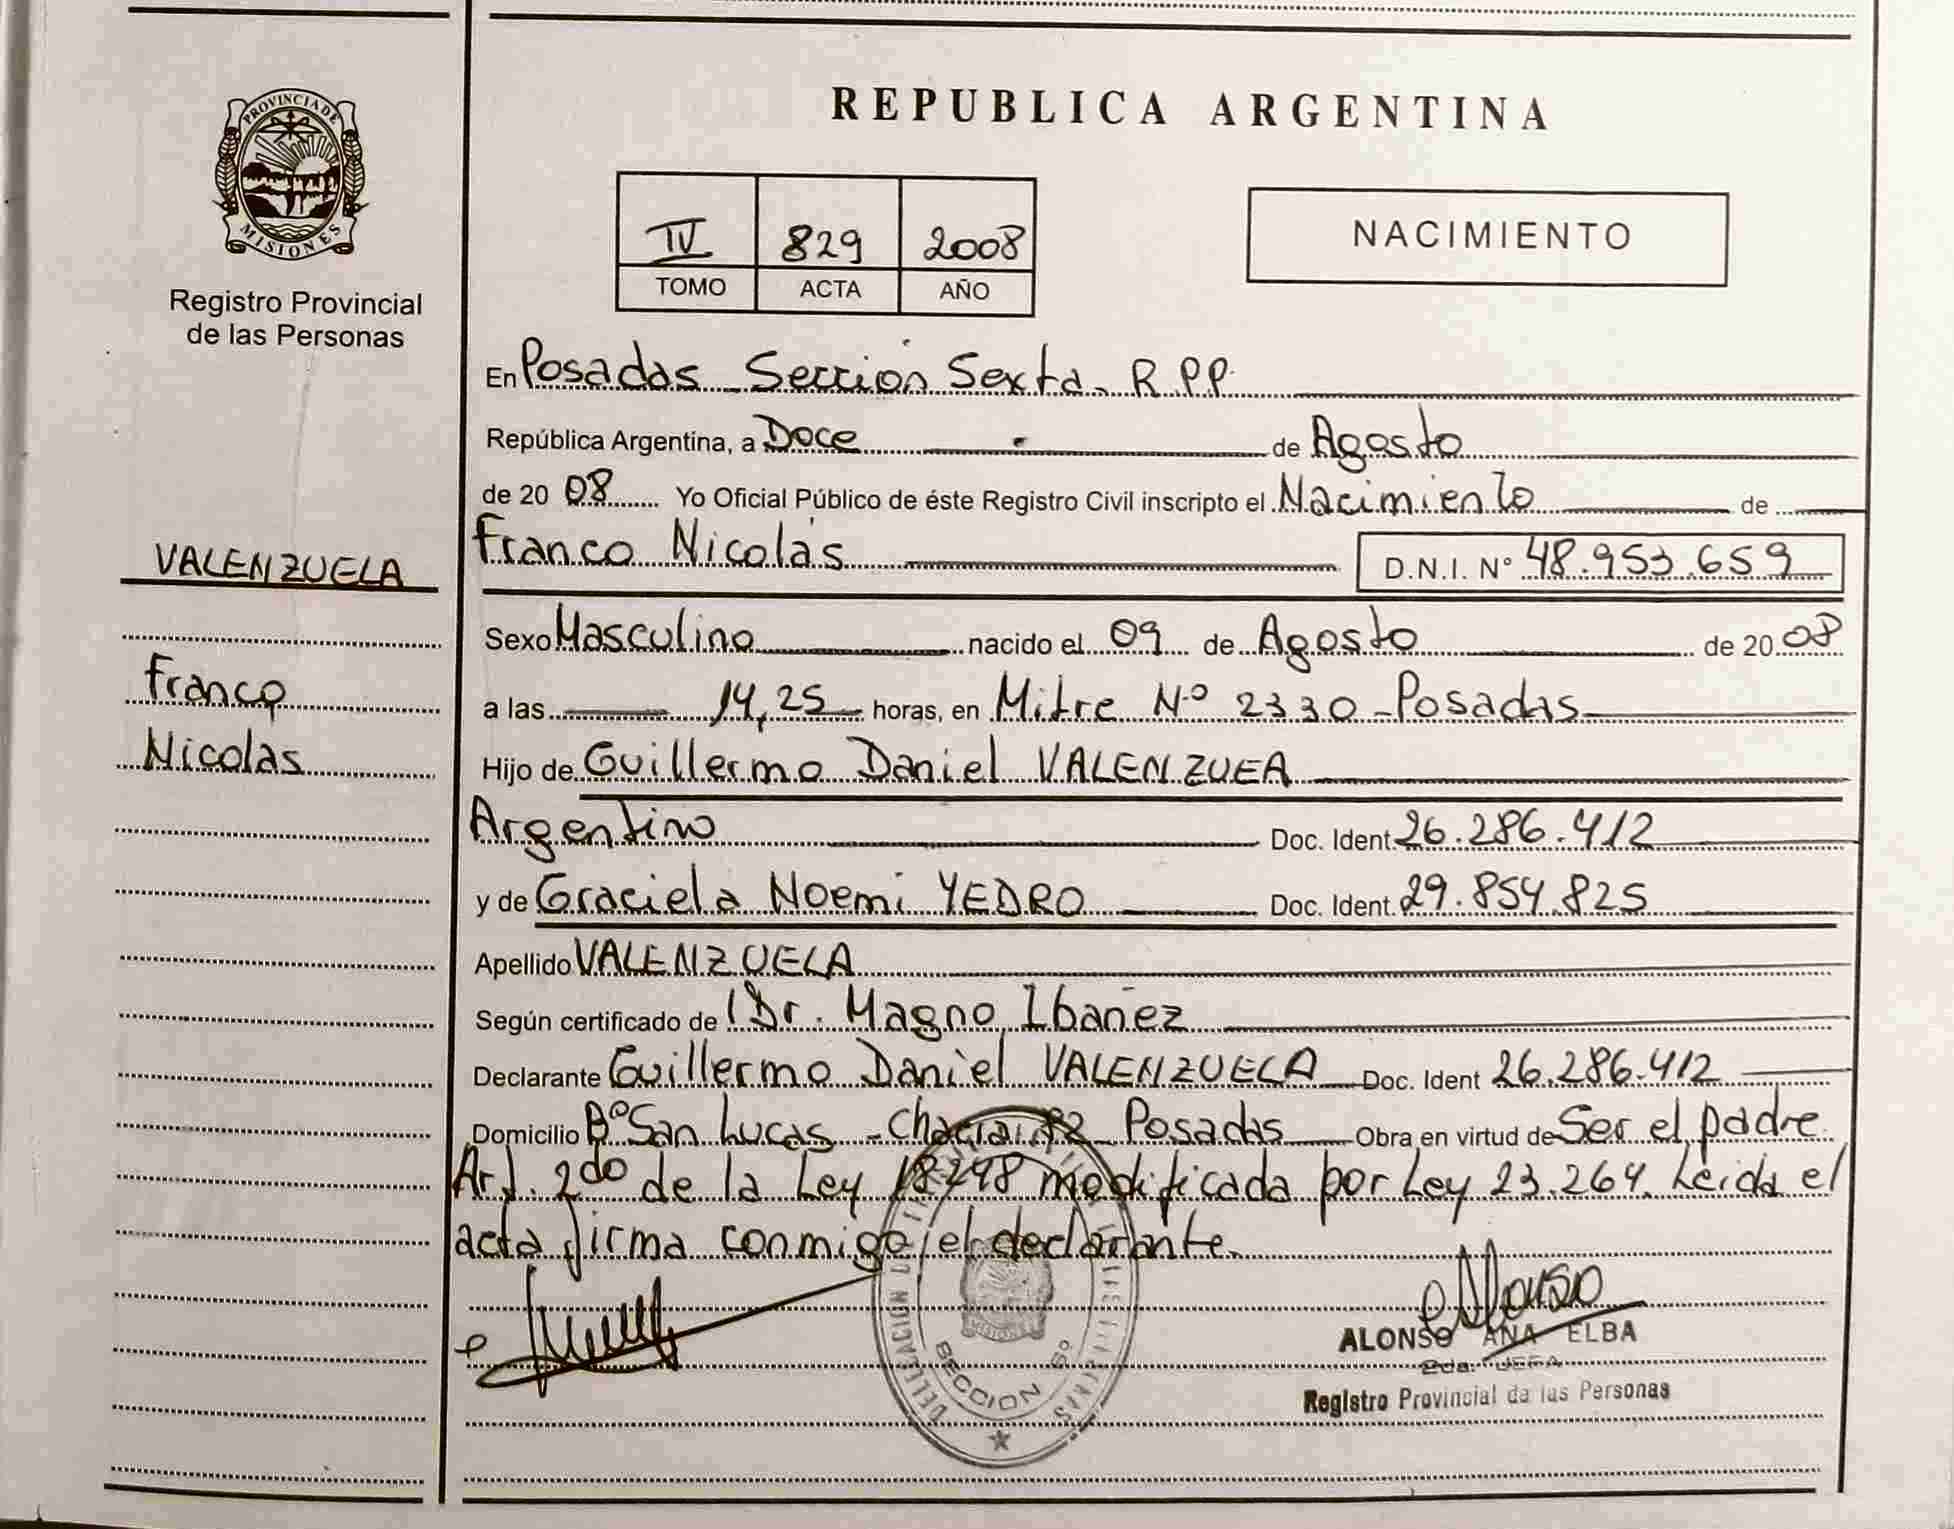 REPUBLICA ARGENTINA
PROVINCIA DE
MISIONES
Registro Provincial
de las Personas
IV 829 2008
TOMO ACTA AÑO
NACIMIENTO
En Posadas Sección Sexta. R.P.P.
República Argentina, a Doce de Agosto
de 20 08 Yo Oficial Público de éste Registro Civil inscripto el Nacimiento de
VALENZUELA
Franco Nicolás D.N.I. N° 48.953.659
Sexo Masculino nacido el 09 de Agosto de 20 08
Franco
a las 14,25 horas, en Mitre N° 2330 - Posadas
Nicolas
Hijo de Guillermo Daniel VALENZUEA
Argentino Doc. Ident. 26.286.412
y de Graciela Noemi YEDRO Doc. Ident. 29.854.825
Apellido VALENZUELA
Según certificado de Dr. Magno Ibañez
Declarante Guillermo Daniel VALENZUELA Doc. Ident 26.286.412
Domicilio B° San Lucas - Posadas Obra en virtud de Ser el padre
Art. 2do de la Ley 18248 modificada por Ley 23.264. Leida el
acta firma conmigo el declarante.
SECCION 6°
Alonso
ALONSO ANA ELBA
2da. JEFA
Registro Provincial de las Personas